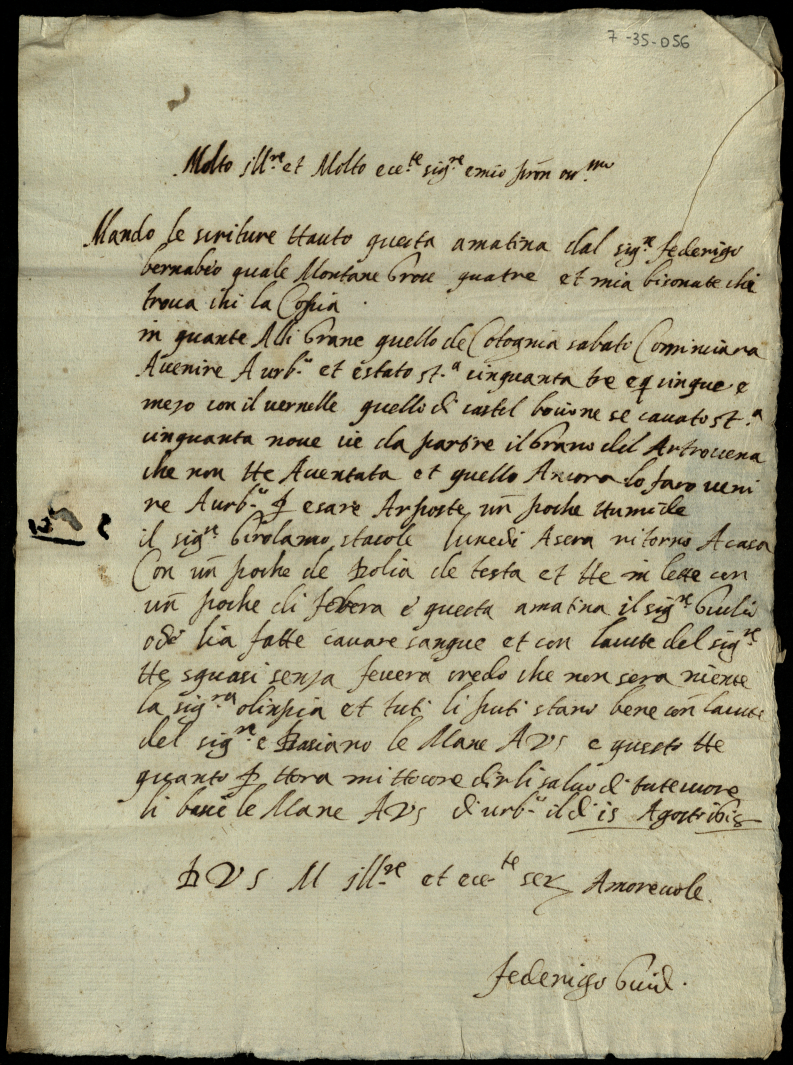 7-35-056
Molto Ill.re et Molto ecc.te sig.re e mio pron oss.mo
Mando le scriture Hauto questa amatina dal sig.re federigo
bernabeo quale Montane Grou quatre et mia bisonate che
trova chi la Copia
in quante Alli Grane quello de Cotognia sabato Cominciara
Avenire A urb.o et e stato st.a cinquanta tre e cinque e
mezo con il vernelle quello di castel bocione se cavato st.a
cinquanta nove vie da partire il Grano del Artrovena
che non He Aventata et quello Ancora lo faro veni
re Aurb.o p esare Arposte un poche Humide
il sig.re Girolamo stacole lunedi Asera ritorno Acasa
Con un poche de dolia de testa et He in lette con
un poche di febera e questa amatina il sig.re Giulio
lia fatte cavare sangue et con laiute del sig.re
He squasi senza fevera credo che non sera niente
la sig.ra olinpia et tuti li puti stano bene con laiute
del sig.re e basiano le Mane A VS e questo He
quanto p Hora mi Hocore dirli salvo di tute cuore
li basie le Mane A VS di urb.o il di is Agosto
D VS M Ill.re et ecc.te ser Amorevole
federigo Guid.